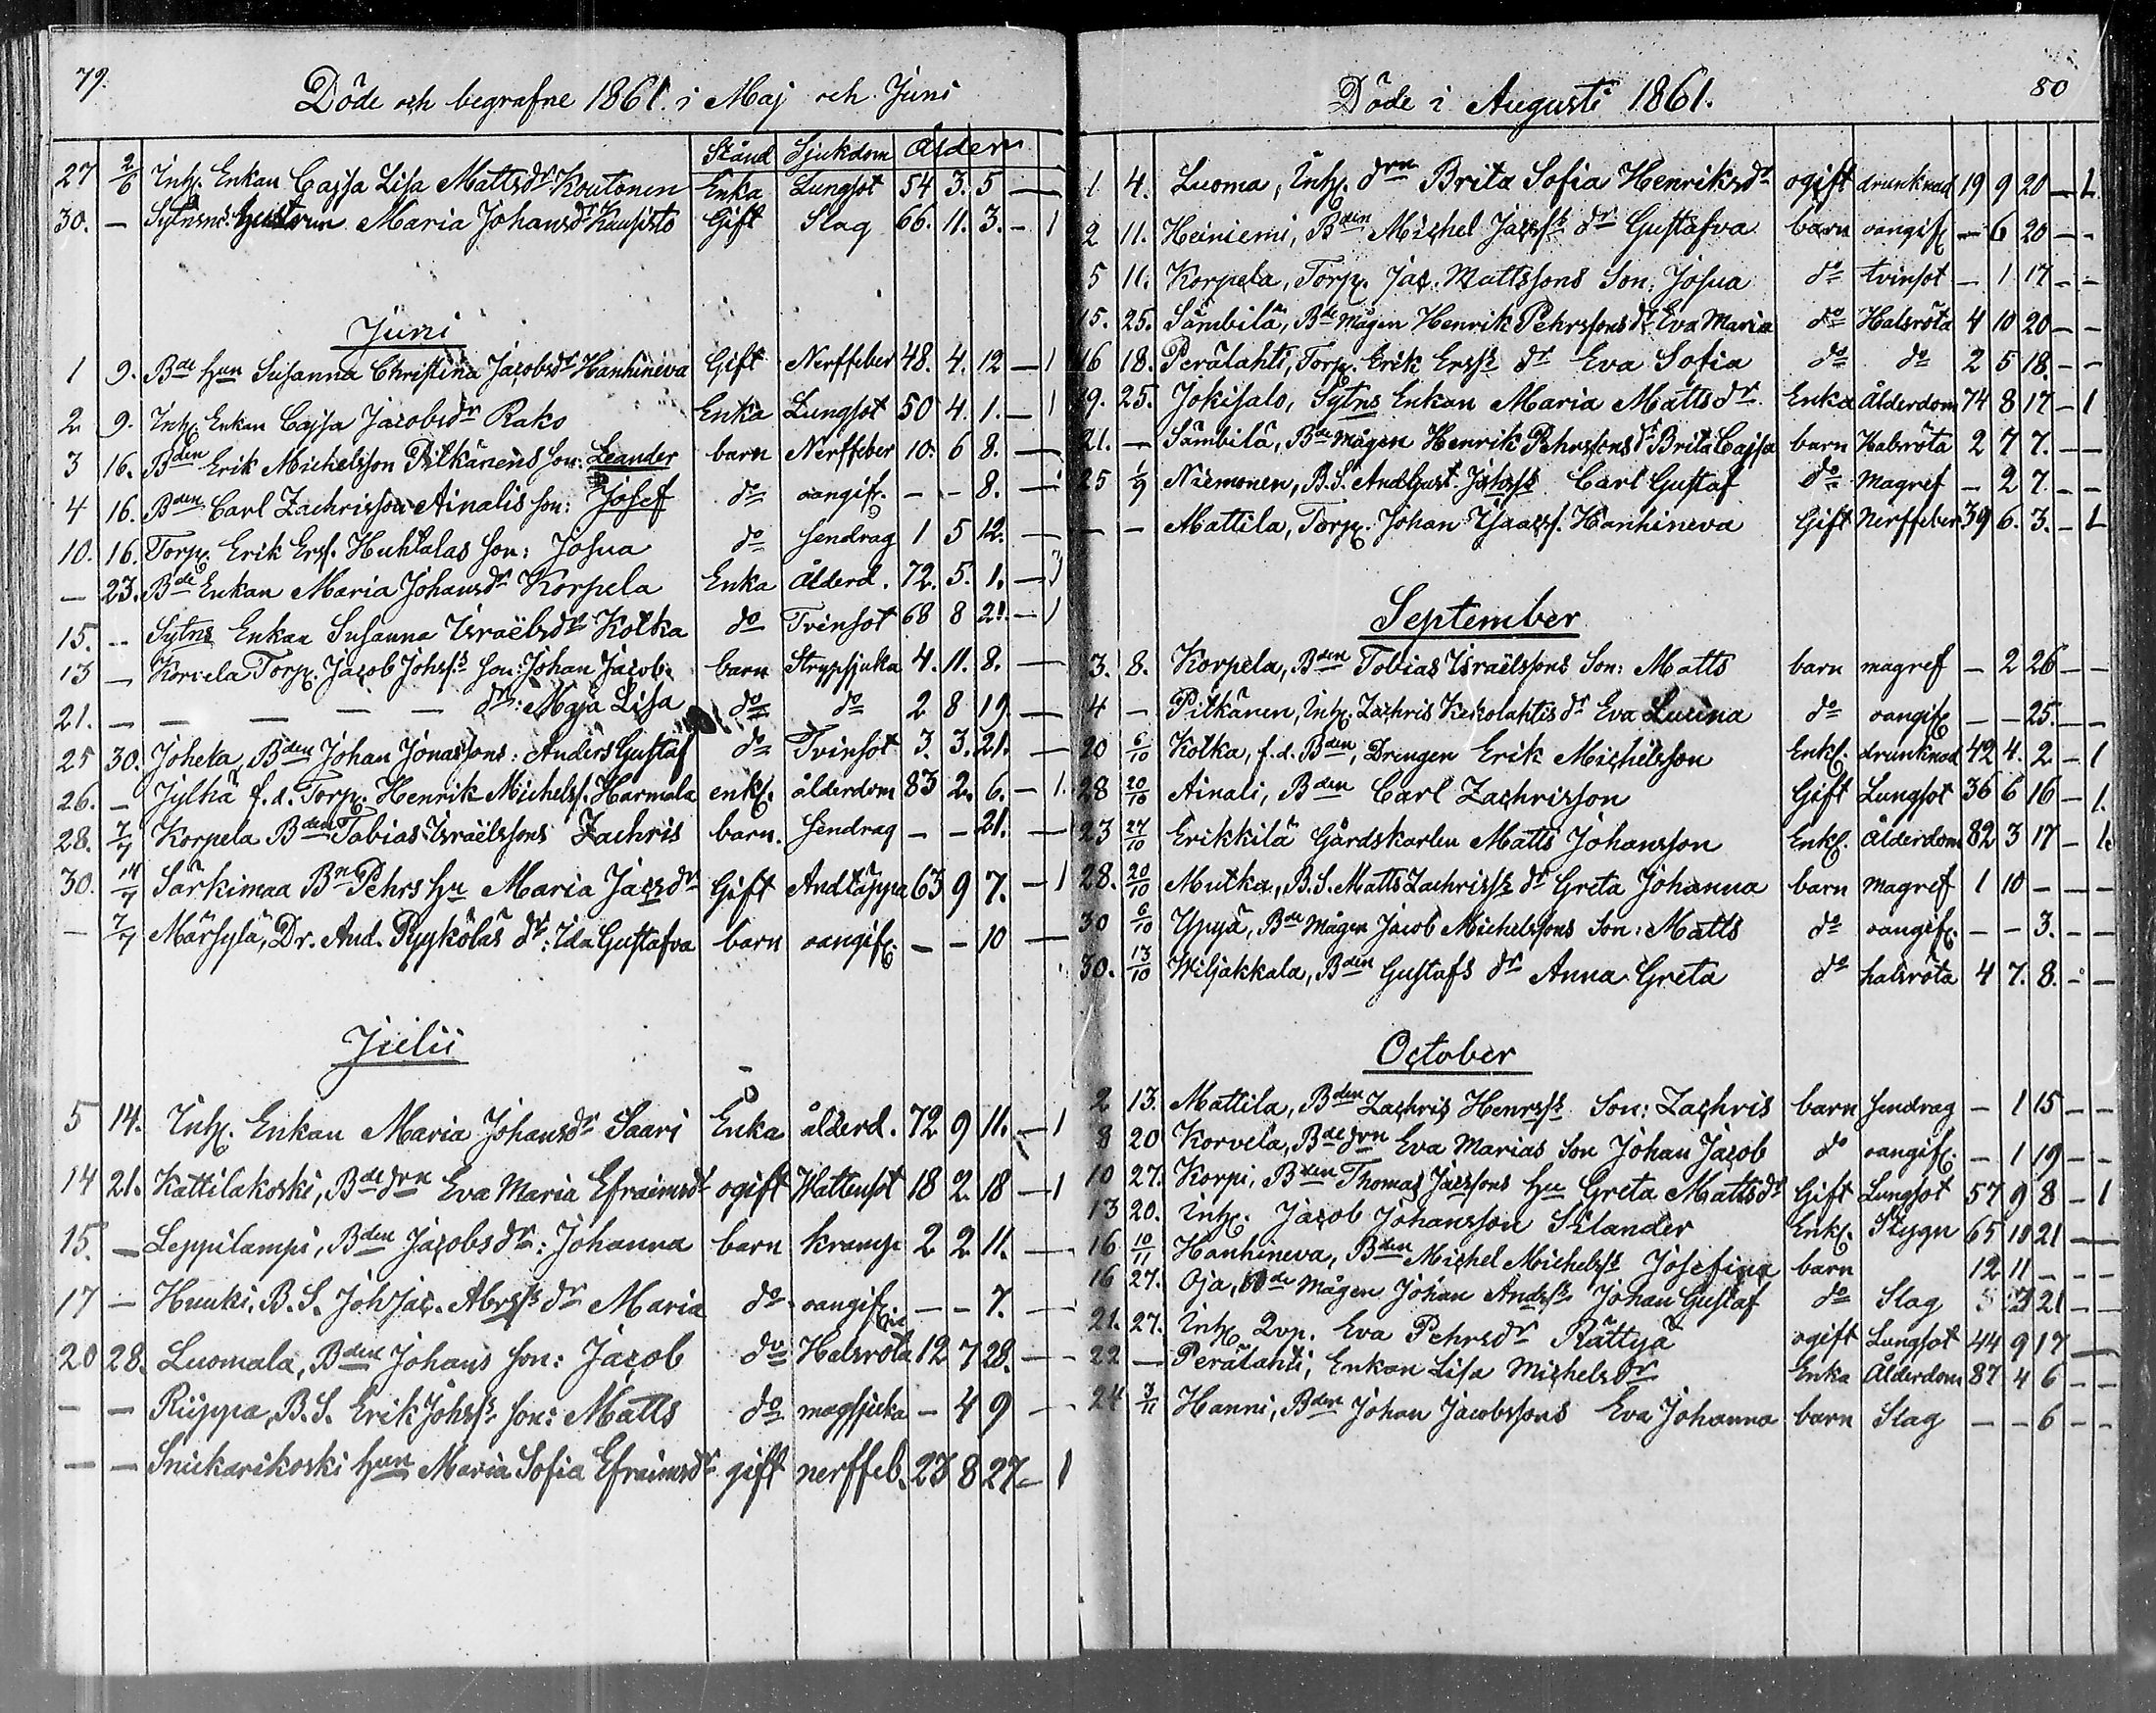 79.
Döde och begrafne 1861. i Maj och Juni
Stånd Sjukdom Ålder
27 2/6 Inh. Enkan Cajsa Lisa Mattsdr Koutonen Enka Lungsot 54 3. 5 —
30. — Sytnsm: Hustrun Maria Johansdr Kausisto Gift Slag 66. 11. 3. — 1
Juni
1 9. Bde hun Susanna Christina Jacobsdr Hanhineva Gift Nerffeber 48. 4. 12 — 1
2 9. Inh. Enkan Cajsa Jacobsdr Rako Enka Lungsot 50 4. 1. — 1
3 16. Bden Erik Michelsson Pitkänens son: Leander barn Nerffeber 10. 6 8. —
4 16. Bden Carl Zachrisson Ainalis son: Josef do oangif. — — 8. —
10. 16. Torp. Erik Ers. Huhtalas son: Josua do sendrag 1 5 12. —
— 23. Bde Enkan Maria Johansdr Korpela Enka Ålderd. 72. 5. 1. — 1
15. — Sytns Enkan Susanna Israëlsdr Kotka do Tvinsot 68 8 21. — 1
13 — Korvela Torp. Jacob Johss son: Johan Jacob. barn Strypsjuka 4. 11. 8. —
21. — — — — — dr: Maja Lisa do do 2 8 19 —
25 30. Joheta, Bden Johan Jonassons: Anders Gustaf do Tvinsot 3. 3. 21. —
26. — Jylhä f.d. Torp. Henrik Michelss. Harmala enkl. ålderdom 83 2. 6. — 1.
28. 7/7 Korpela Bden Tobias Israëlssons Zachris barn. sendrag — — 21. —
30. 14/7 Särkimaa Bn Pehrs hu Maria Jacsdr Gift Andtäppa 63 9 7. — 1
— 7/7 Märsylä, Dr. And. Pyykölas dr: Ida Gustafva barn oangif. — — 10 —
Julii
5 14. Inh. Enkan Maria Johansdr Saari Enka ålderd. 72 9 11. — 1
14 21. Kattilakoski, Bde drn Eva Maria Efraimsdr ogift Wattensot 18 2 18 — 1
15. — Leppilampi, Bden Jacobs dr: Johanna barn kramp 2 2 11. —
17 — Huuki, B.S. Joh Jac. Abrss dr Maria do oangif. — — 7. —
20 28. Luomala, Bden Johans son: Jacob do Halsröta 12 7 28. —
— — Riippa, B.S. Erik Johss son: Matts do magsjuka — 4 9 —
— — Sniekarikoski hun Maria Sofia Efraimsdr gift nerffeb. 23 8 27 — 1
80
Döde i Augusti 1861.
1. 4. Luoma, Inh. drn Brita Sofia Henriksdr ogift drunknad 19 9 20 — 1
2 11. Heiniemi, Bden Michel Jacss dr Gustafva barn oangif — 6 20 — —
5 11. Korpela, Torp. Jac. Mattssons Son: Josua do tvinsot — 1 17 — —
15. 25. Sämbilä, Bde Mågen Henrik Pehrssons dr Eva Maria do Halsröta 4 10 20 — —
16 18. Perälahti, Torp. Erik Erss dr Eva Sofia do do 2 5 18. — —
19. 25. Jokisalo, Sytns Enkan Maria Matts dr. Enka Ålderdom 74 8 17 — 1
21. — Sämbilä, Bde Mågen Henrik Pehrssons dr Brita Cajsa barn Halsröta 2 7 7. — —
25 1/9 Niemonen, B.S. And Gust. Johss Carl Gustaf do Magref — 2 7. — —
— — Mattila, Torp. Johan Isaacss. Hanhineva Gift Nerffeber 39 6. 3. — 1
September
3. 8. Korpela, Bden Tobias Israëlssons Son: Matts barn magref — 2 26 — —
4 — Pitkänen, Inh. Zachris Kekolahtis dr Eva Lucina do oangif — — 25. — —
20 6/10 Kotka, f.d. Bden, Drengen Erik Michelsson Enkl. drunknad 42 4. 2 — 1
28 20/10 Ainali, Bden Carl Zachrisson Gift Lungsot 36 6 16 — 1.
23 27/10 Erikkilä Gårdskarlen Matts Johansson Enkl. Ålderdom 82 3 17 — 1.
28. 20/10 Mutka, B.S. Matts Zachriss dr Greta Johanna barn Magref 1 10 — — —
30 6/10 Ypyä, Bde Mågen Jacob Michelssons Son: Matts do oangif. — — 3. — —
30. 13/10 Wiljakkala, Bden Gustafs dr Anna Greta do halsröta 4 7. 8. — —
October
2 13. Mattila, Bden Zachris Henrss Son: Zachris barn sendrag — 1 15 — —
8 20 Korvela, Bde drn Eva Marias Son Johan Jacob do oangif. — 1 19 — —
10 27. Korpi, Bden Thomas Jacssons hu Greta Mattsdr Gift Lungsot 57 9 8 — 1
13 20. Inh. Jacob Johansson Selander Enkl. Stygn 65 10 21 —
16 10/11 Hanhineva, Bden Michel Michelss Josefina barn 12 11 — — —
16 27. Oja, Bde Mågen Johan Andss Johan Gustaf do Slag 21 — —
21. 27. Inh. Qvp. Eva Pehrsdr Rättyä ogift Lungsot 44 9 17 —
22 — Perälahti, Enkan Lisa Michelsdr Enka Ålderdom 87 4 6 — —
24 3/11 Hanni, Bden Johan Jacobssons Eva Johanna barn Slag — — 6 — —